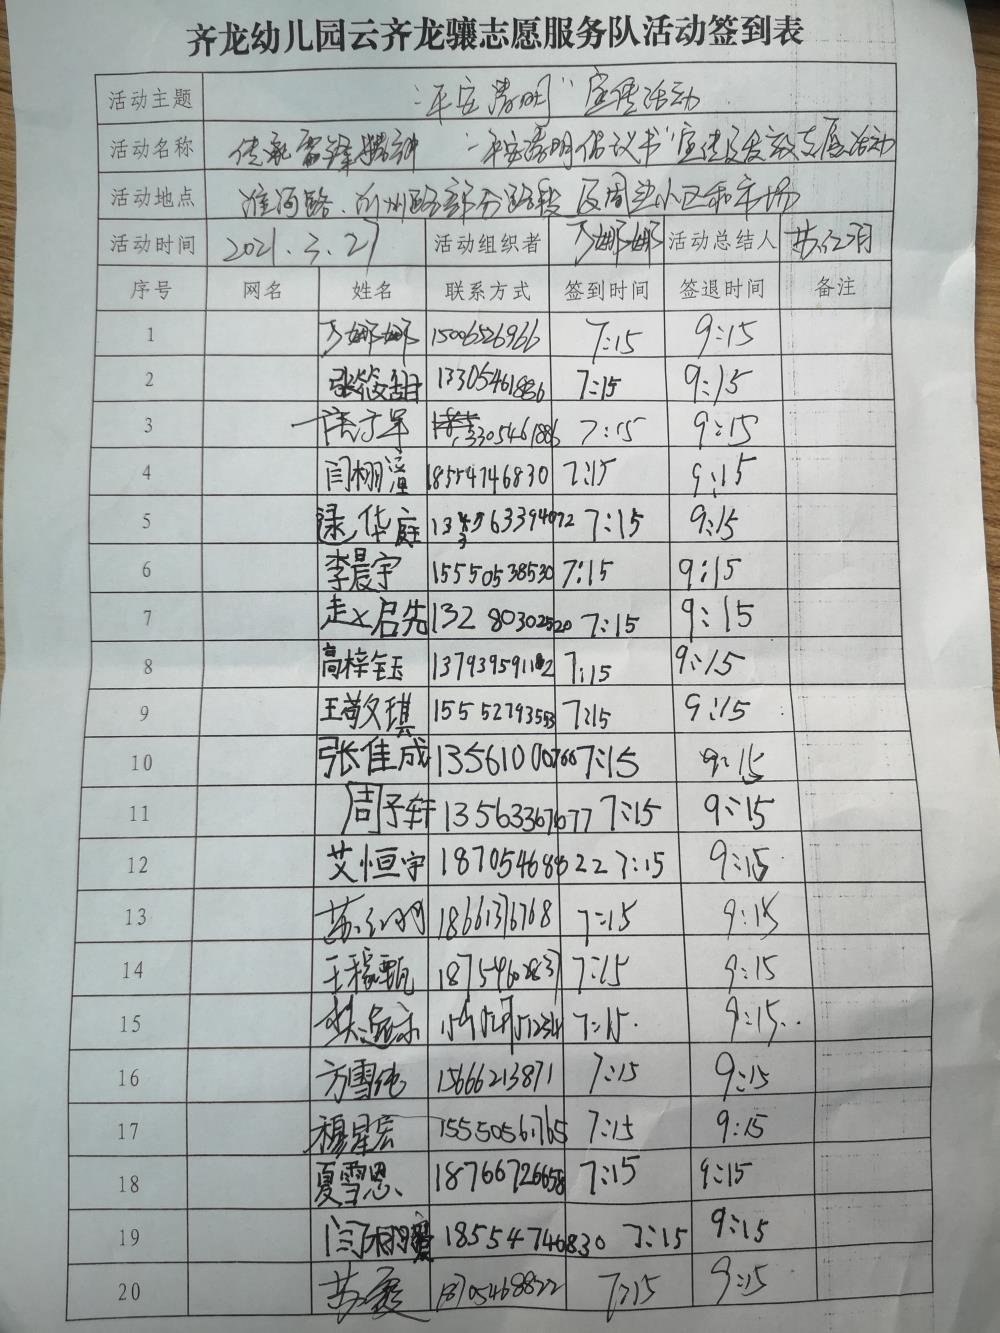 齐龙幼儿园云齐龙骧志愿服务队活动签到表
活动主题 "平安清明"宣传活动
活动名称 传承雷锋精神 "平安清明倡议书"宣传及发放志愿活动
活动地点 淮河路、沂州路部分路段及周边小区和市场
活动时间 2021.3.27 活动组织者 娜娜 活动总结人 苏红羽
序号 网名 姓名 联系方式 签到时间 签退时间 备注
1 娜娜 15006526966 7:15 9:15
2 张筱甜 13305461886 7:15 9:15
3 13305461886 7:15 9:15
4 闫栩潼 18554746830 7:15 9:15
5 逯华庭 7:15 9:15
6 李晨宇 15550538530 7:15 9:15
7 赵启先 13280302520 7:15 9:15
8 高梓钰 7:15 9:15
9 王敬文琪 15552793553 7:15 9:15
10 张佳成 13561000766 7:15 9:15
11 周子轩 13563367677 7:15 9:15
12 艾恒宇 18705468822 7:15 9:15
13 苏红羽 18661376768 7:15 9:15
14 王稼甄 18754602837 7:15 9:15
15 7:15 9:15
16 方雪纯 15666213871 7:15 9:15
17 穆星宏 15550561765 7:15 9:15
18 夏雪恩 18766726658 7:15 9:15
19 闫栩瑷 18554746830 7:15 9:15
20 苏霞 18705468822 7:15 9:15